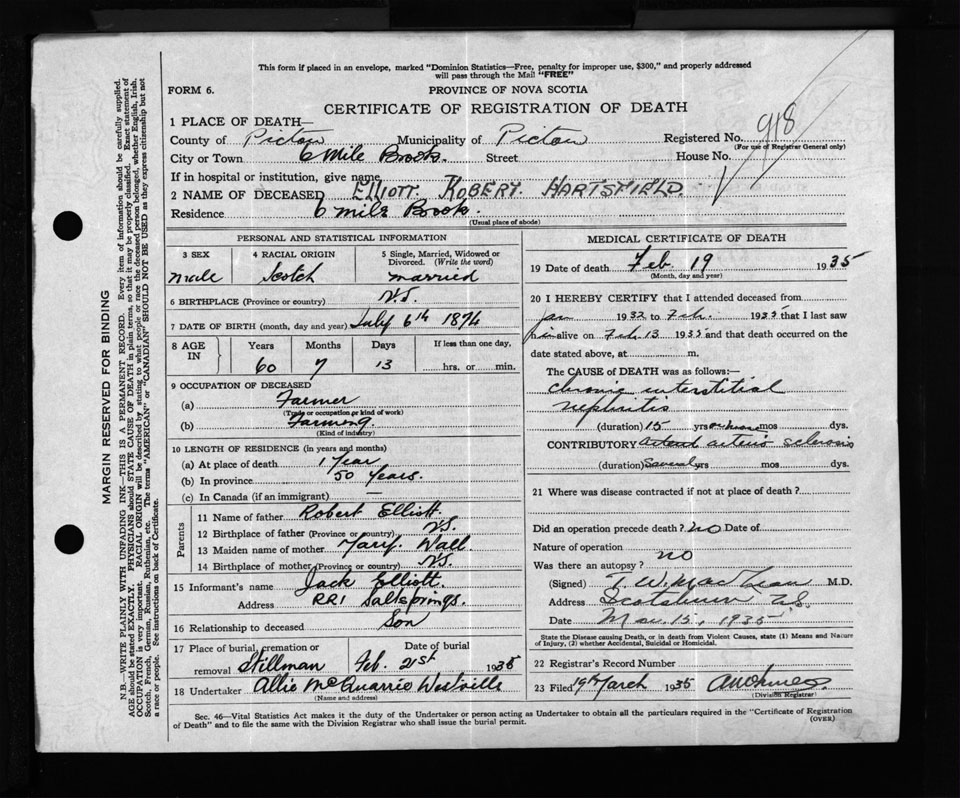 This form if placed in an envelope, marked "Dominion Statistics—Free, penalty for improper use, $300," and properly addressed
will pass through the Mail "FREE"
FORM 6.
PROVINCE OF NOVA SCOTIA
CERTIFICATE OF REGISTRATION OF DEATH
1 PLACE OF DEATH—
County of Pictou Municipality of Pictou Registered No. 918
(For use of Registrar General only)
City or Town 6 Mile Brook. Street House No.
If in hospital or institution, give name
2 NAME OF DECEASED ELLIOTT. ROBERT. HARTSFIELD.
Residence 6 Mile Brook.
(Usual place of abode)
PERSONAL AND STATISTICAL INFORMATION
3 SEX 4 RACIAL ORIGIN 5 Single, Married, Widowed or
Divorced. (Write the word)
male Scotch married
6 BIRTHPLACE (Province or country) N.S.
7 DATE OF BIRTH (month, day and year) July 6th 1874
8 AGE IN Years Months Days If less than one day,
60 7 13 hrs. or min.
9 OCCUPATION OF DECEASED
(a) Farmer
(Trade or occupation or kind of work)
(b) Farming.
(Kind of industry)
10 LENGTH OF RESIDENCE (in years and months)
(a) At place of death 1 Year
(b) In province 50 Years.
(c) In Canada (if an immigrant) —
Parents
11 Name of father Robert Elliott.
12 Birthplace of father (Province or country) N.S.
13 Maiden name of mother Mary. Wall
14 Birthplace of mother (Province or country) N.S.
15 Informant's name Jack Elliott.
Address RR1 Saltsprings.
16 Relationship to deceased Son
17 Place of burial, cremation or Date of burial
removal Stillman Feb. 21st 1935
18 Undertaker Allie McQuarrie Westville
(Name and address)
MEDICAL CERTIFICATE OF DEATH
19 Date of death Feb. 19 1935
(Month, day and year)
20 I HEREBY CERTIFY that I attended deceased from
Jan 1932 to Feb. 1935 that I last saw
him alive on Feb. 13 1935 and that death occurred on the
date stated above, at m.
The CAUSE of DEATH was as follows:—
Chronic interstitial
nephritis
(duration) 15 yrs or more mos dys.
CONTRIBUTORY arterio sclerosis
(duration) Several yrs mos dys.
21 Where was disease contracted if not at place of death?
Did an operation precede death? no Date of
Nature of operation
Was there an autopsy? no
(Signed) T. W. MacLean M.D.
Address Scotsburn N.S.
Date Mar. 15, 1935
State the Disease causing Death, or in death from Violent Causes, state (1) Means and Nature
of Injury, (2) whether Accidental, Suicidal or Homicidal.
22 Registrar's Record Number
23 Filed 19th March 1935
(Division Registrar)
Sec. 46—Vital Statistics Act makes it the duty of the Undertaker or person acting as Undertaker to obtain all the particulars required in the "Certificate of Registration
of Death" and to file the same with the Division Registrar who shall issue the burial permit. (OVER)
MARGIN RESERVED FOR BINDING
N.B.—WRITE PLAINLY WITH UNFADING INK—THIS IS A PERMANENT RECORD. Every item of information should be carefully supplied.
AGE should be stated EXACTLY. PHYSICIANS should STATE CAUSE OF DEATH in plain terms, so that it may be properly classified. Exact statement of
OCCUPATION is very important. RACIAL ORIGIN will be described by stating to what people or race the deceased person belonged, whether English, Irish,
Scotch, French, German, Russian, Ruthenian, etc. The terms "AMERICAN" or "CANADIAN" SHOULD NOT BE USED as they express citizenship but not
a race or people. See instructions on back of Certificate.